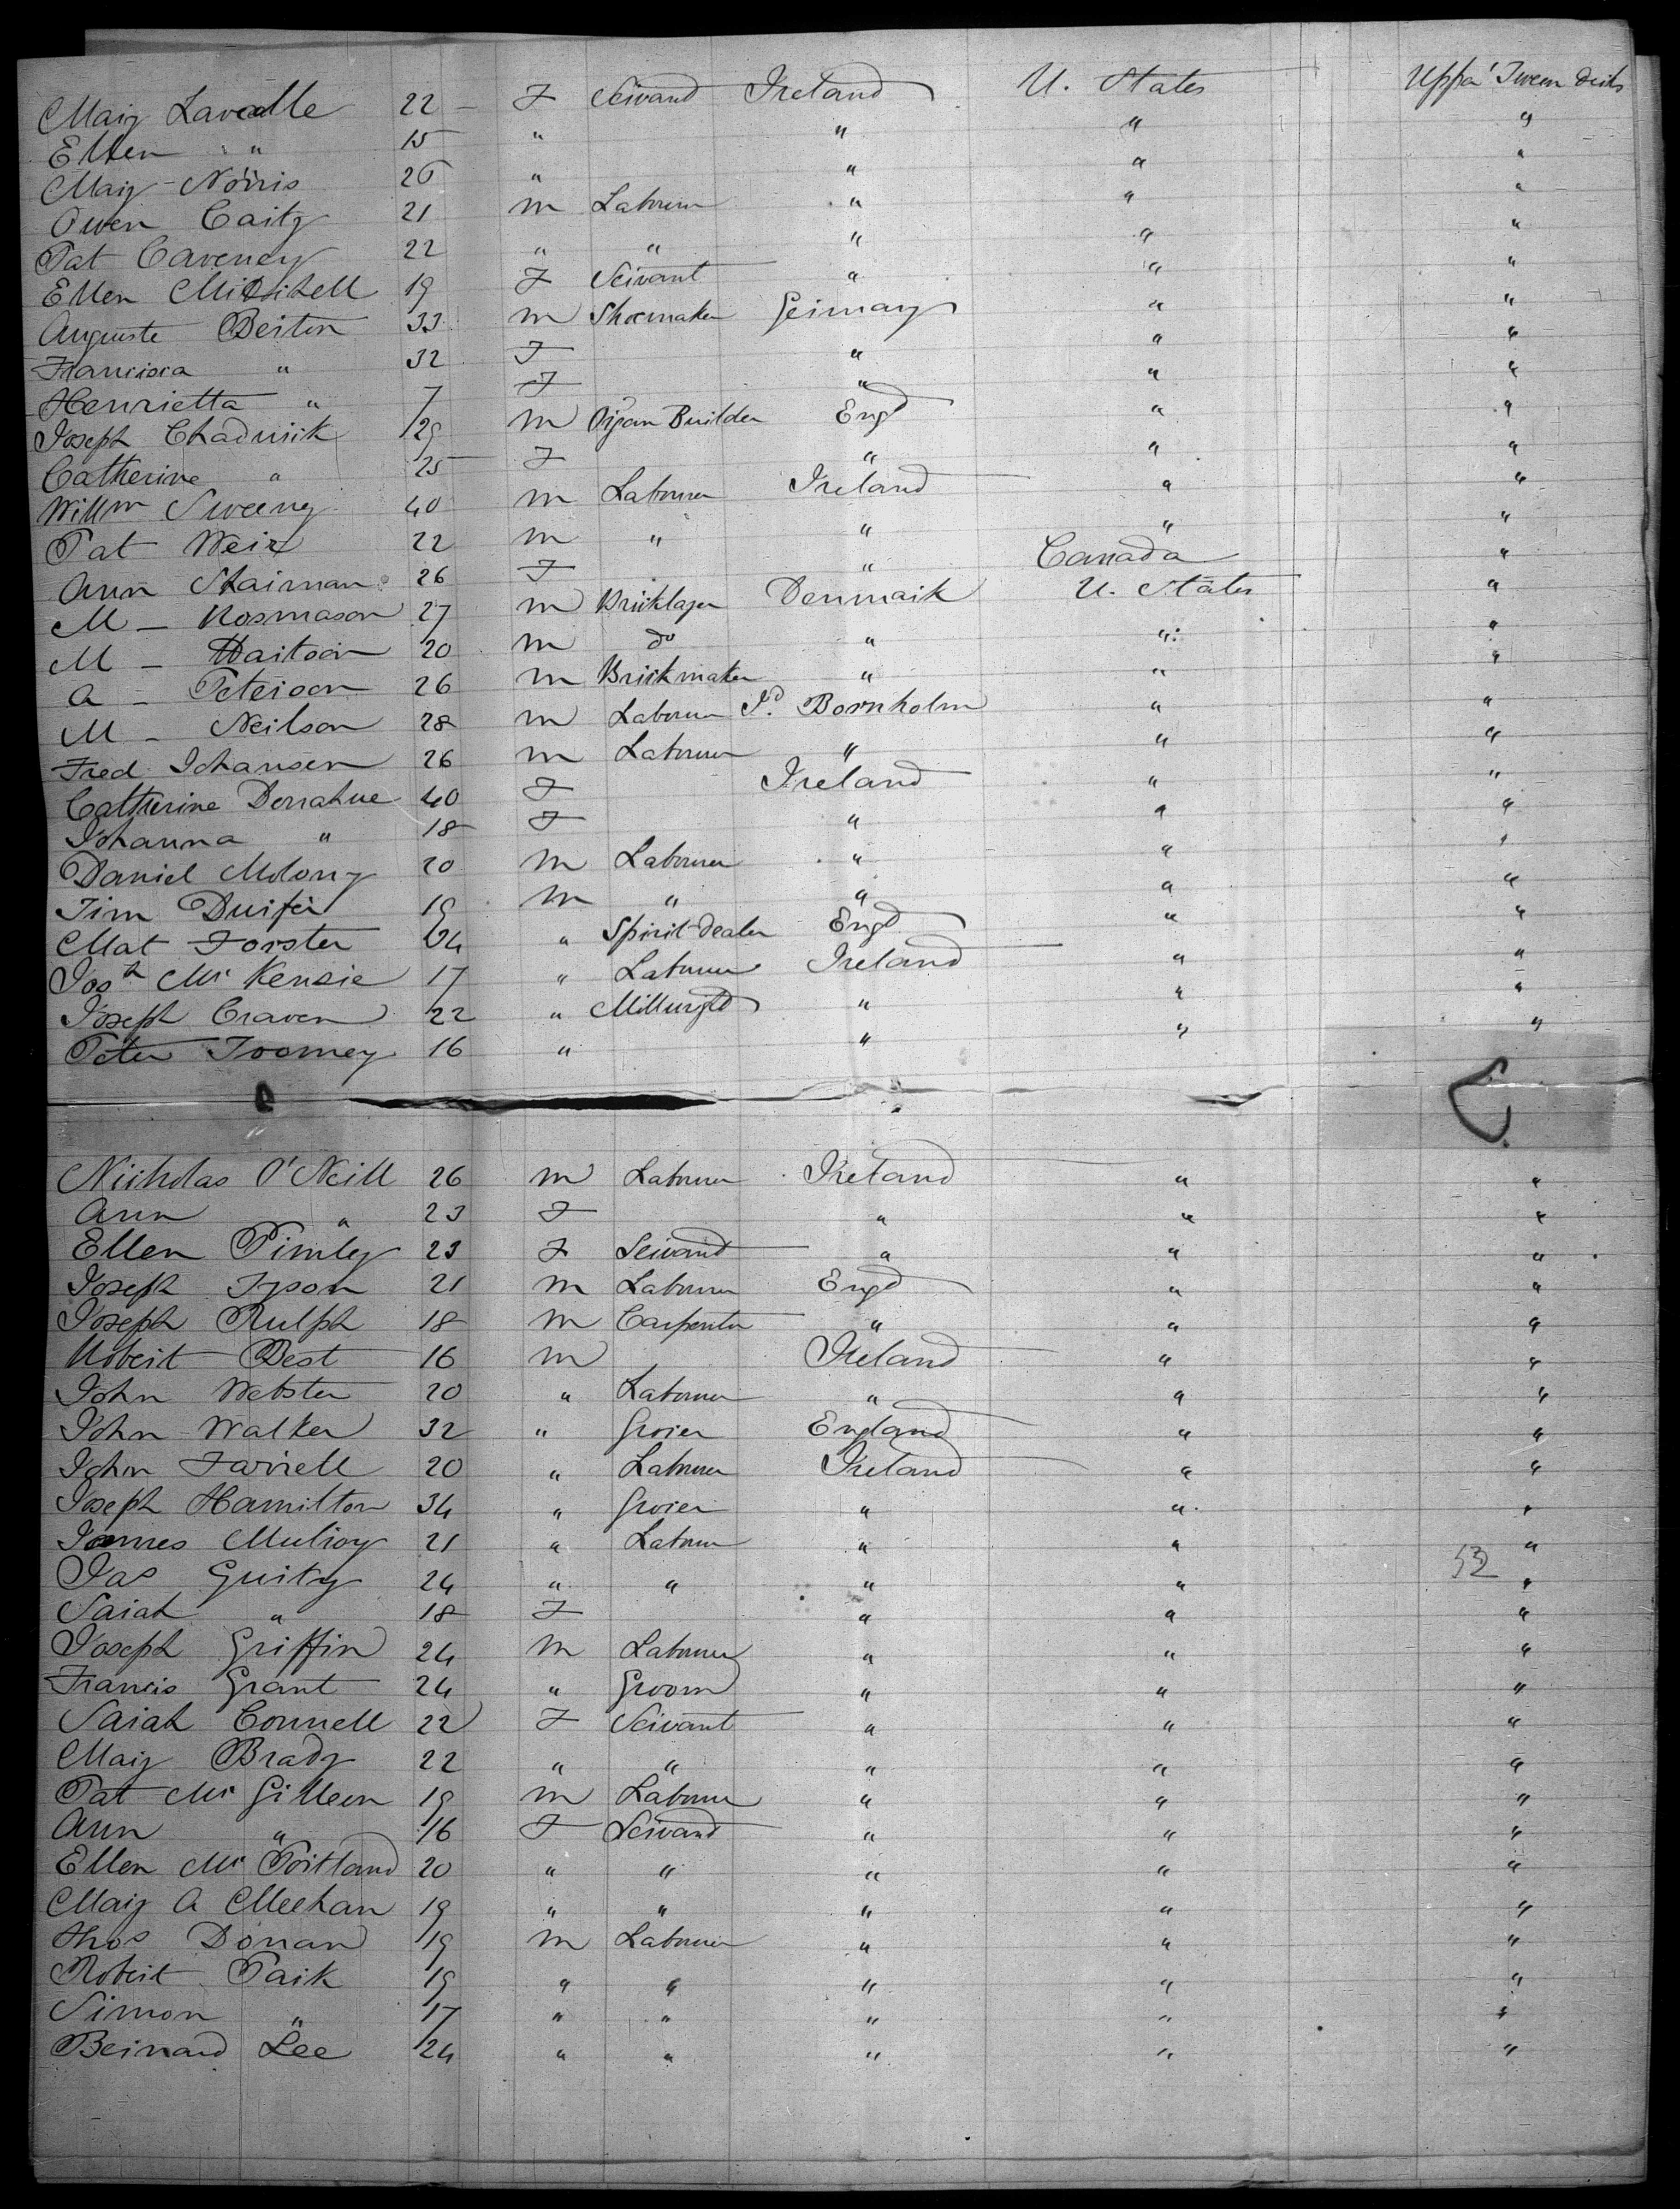 Mary Lavealle 22 F Servand Ireland U. States Upper Tween decks
Ellen " 15 " " " "
Mary Norris 26 " " " "
Owen Carty 21 m Labourer " " "
Pat Caveney 22 " " " " "
Ellen Mitchell 19 F Servant " " "
Auguste Berton 33 m Shoemaker Germany " "
Francisca " 32 F " " "
Henrietta " 7 F " " "
Joseph Chadwick 29 m Organ Builder Engd " "
Catherine " 25 F " " "
Willm Sweeny 40 m Labourer Ireland " "
Pat Weir 22 m " " " "
Ann Stairman 26 F " Canada "
M - Rosmason 27 m Bricklayer Denmark U. States "
M - 20 m do " " "
A - Peterson 26 m Brickmaker " " "
M - Neilson 28 m Labourer Id. Bornholm " "
Fred Johansen 26 m Labourer " " "
Catherine Donahue 40 F Ireland " "
Johanna " 18 F " " "
Daniel Molony 20 m Labourer " " "
Tim 19 m " " " "
Mat Forster 24 " Spirit dealer Engd " "
Josh Mc Kensie 17 " Labourer Ireland " "
Joseph Craven 22 " Millwrgtd " " "
Peter Toomey 16 " " " "
Nicholas O'Neill 26 m Labourer Ireland " "
Ann " 23 F " " "
Ellen Pimley 23 F Servand " " "
Joseph Tyson 21 m Labourer Engd " "
Joseph Rulph 18 m Carpenter " " "
Robert Best 16 m Ireland " "
John Webster 20 " Labourer " " "
John Walker 32 " Grocer England " "
John Farrell 20 " Labourer Ireland " "
Joseph Hamilton 34 " Grocer " " "
James Mulroy 21 " Labourer " " "
52
Jas Guity 24 " " " " "
Sarah " 18 F " " "
Joseph Griffin 24 m Labourer " " "
Francis Grant 24 " Groom " " "
Sarah Connell 22 F Servant " " "
Mary Brady 22 " " " " "
Pat Mc Gilleen 19 m Labourer " " "
Ann " 16 F Servand " " "
Ellen Mc Portland 20 " " " " "
Mary A Meehan 19 " " " " "
Thos Donan 19 m Labourer " " "
Robert Park 19 " " " " "
Simon " 17 " " " " "
Bernard Lee 24 " " " " "